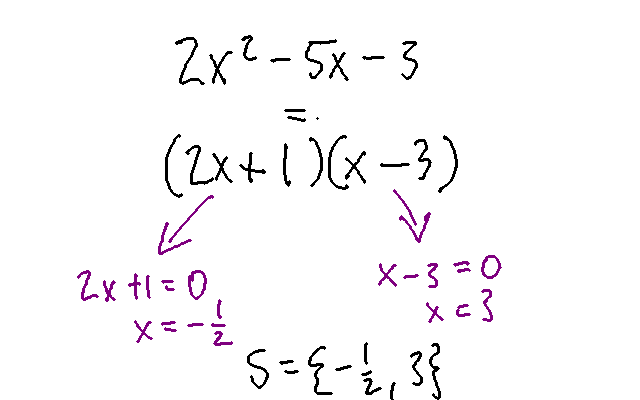 2x² - 5x - 3
=
(2x+1)(x-3)
2x+1=0
x=-1/2
x-3=0
x=3
S={-1/2, 3}